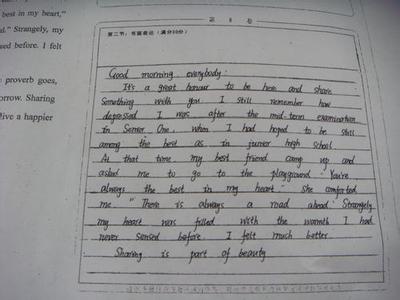 best in my heart,"
d." Strangely, my
sed before. I felt
proverb goes,
orrow. Sharing
live a happier
第 卷
第二节：书面表达（满分30分）
Good morning, everybody:
It's a great honour to be here and share
Something with you. I still remember how
depressed I was after the mid-term examination
in Senior One, when I had hoped to be still
among the best as in junior high school.
At that time my best friend came up and
asked me to go to the playground. "You're
always the best in my heart." She comforted
me. "There is always a road ahead." Strangely,
my heart was filled with the warmth I had
never sensed before. I felt much better.
Sharing is part of beauty